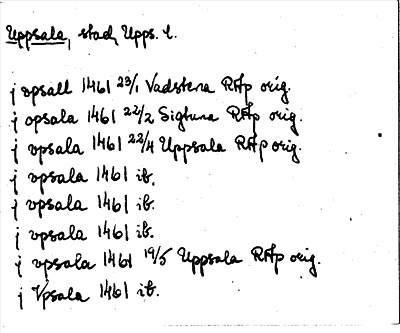 Uppsala, stad, Upps. l.
j opsall 1461 23/1 Vadstena RAp orig.
j opsala 1461 22/2 Sigtuna RAp orig.
j vpsala 1461 22/4 Uppsala RAp orig.
j vpsala 1461 ib.
j vpsala 1461 ib.
j vpsala 1461 ib.
j vpsala 1461 19/5 Uppsala RAp orig.
j Vpsala 1461 ib.